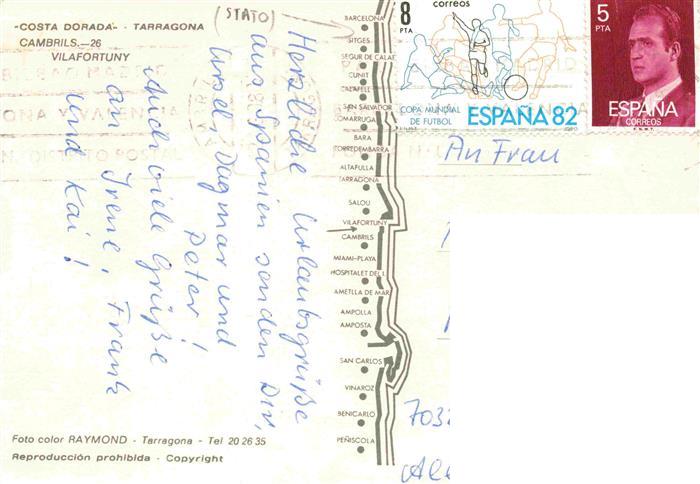 "COSTA DORADA" - TARRAGONA
CAMBRILS.—26
VILAFORTUNY
(STATO)
Herzliche Urlaubsgrüße
aus Spanien senden Dir,
Ursel, Dagmar und
Peter!
Auch viele Grüße
an Irene, Frank
und Kai!
Foto color RAYMOND - Tarragona - Tel 20 26 35
Reproducción prohibida - Copyright
BARCELONA
SITGES
SEGUR DE CALAF
CUNIT
CALAFELL
SAN SALVADOR
COMARRUGA
BARA
TORREDEMBARRA
ALTAFULLA
TARRAGONA
SALOU
VILAFORTUNY
CAMBRILS
MIAMI-PLAYA
HOSPITALET DEL I.
AMETLLA DE MAR
AMPOLLA
AMPOSTA
SAN CARLOS
VINAROZ
BENICARLO
PEÑISCOLA
8
PTA
correos
COPA MUNDIAL
DE FUTBOL
ESPAÑA 82
5
PTA
ESPAÑA
CORREOS
F.N.M.T.
An Frau
703